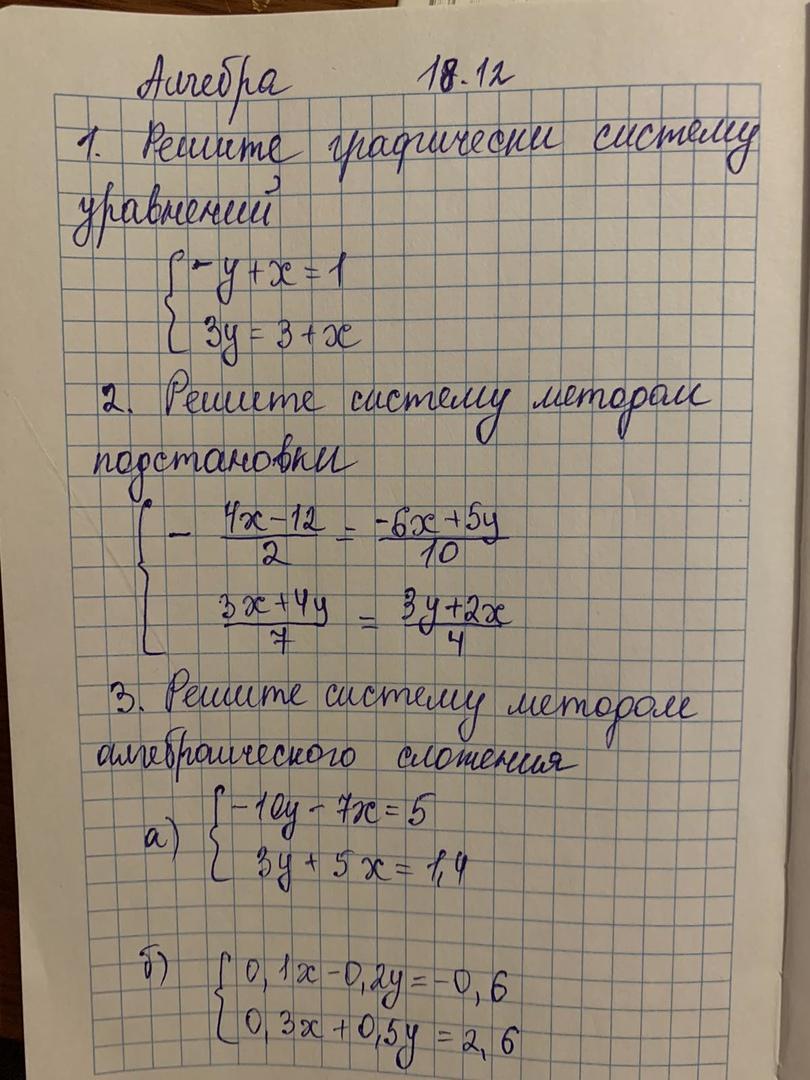 Алгебра 18.12
1. Решите графически систему
уравнений
{ -y + x = 1
3y = 3 + x
2. Решите систему методом
подстановки
{ - (4x - 12)/2 = (-6x + 5y)/10
(3x + 4y)/7 = (3y + 2x)/4
3. Решите систему методом
алгебраического сложения
а) { -10y - 7x = 5
3y + 5x = 1,4
б) { 0,1x - 0,2y = -0,6
0,3x + 0,5y = 2,6